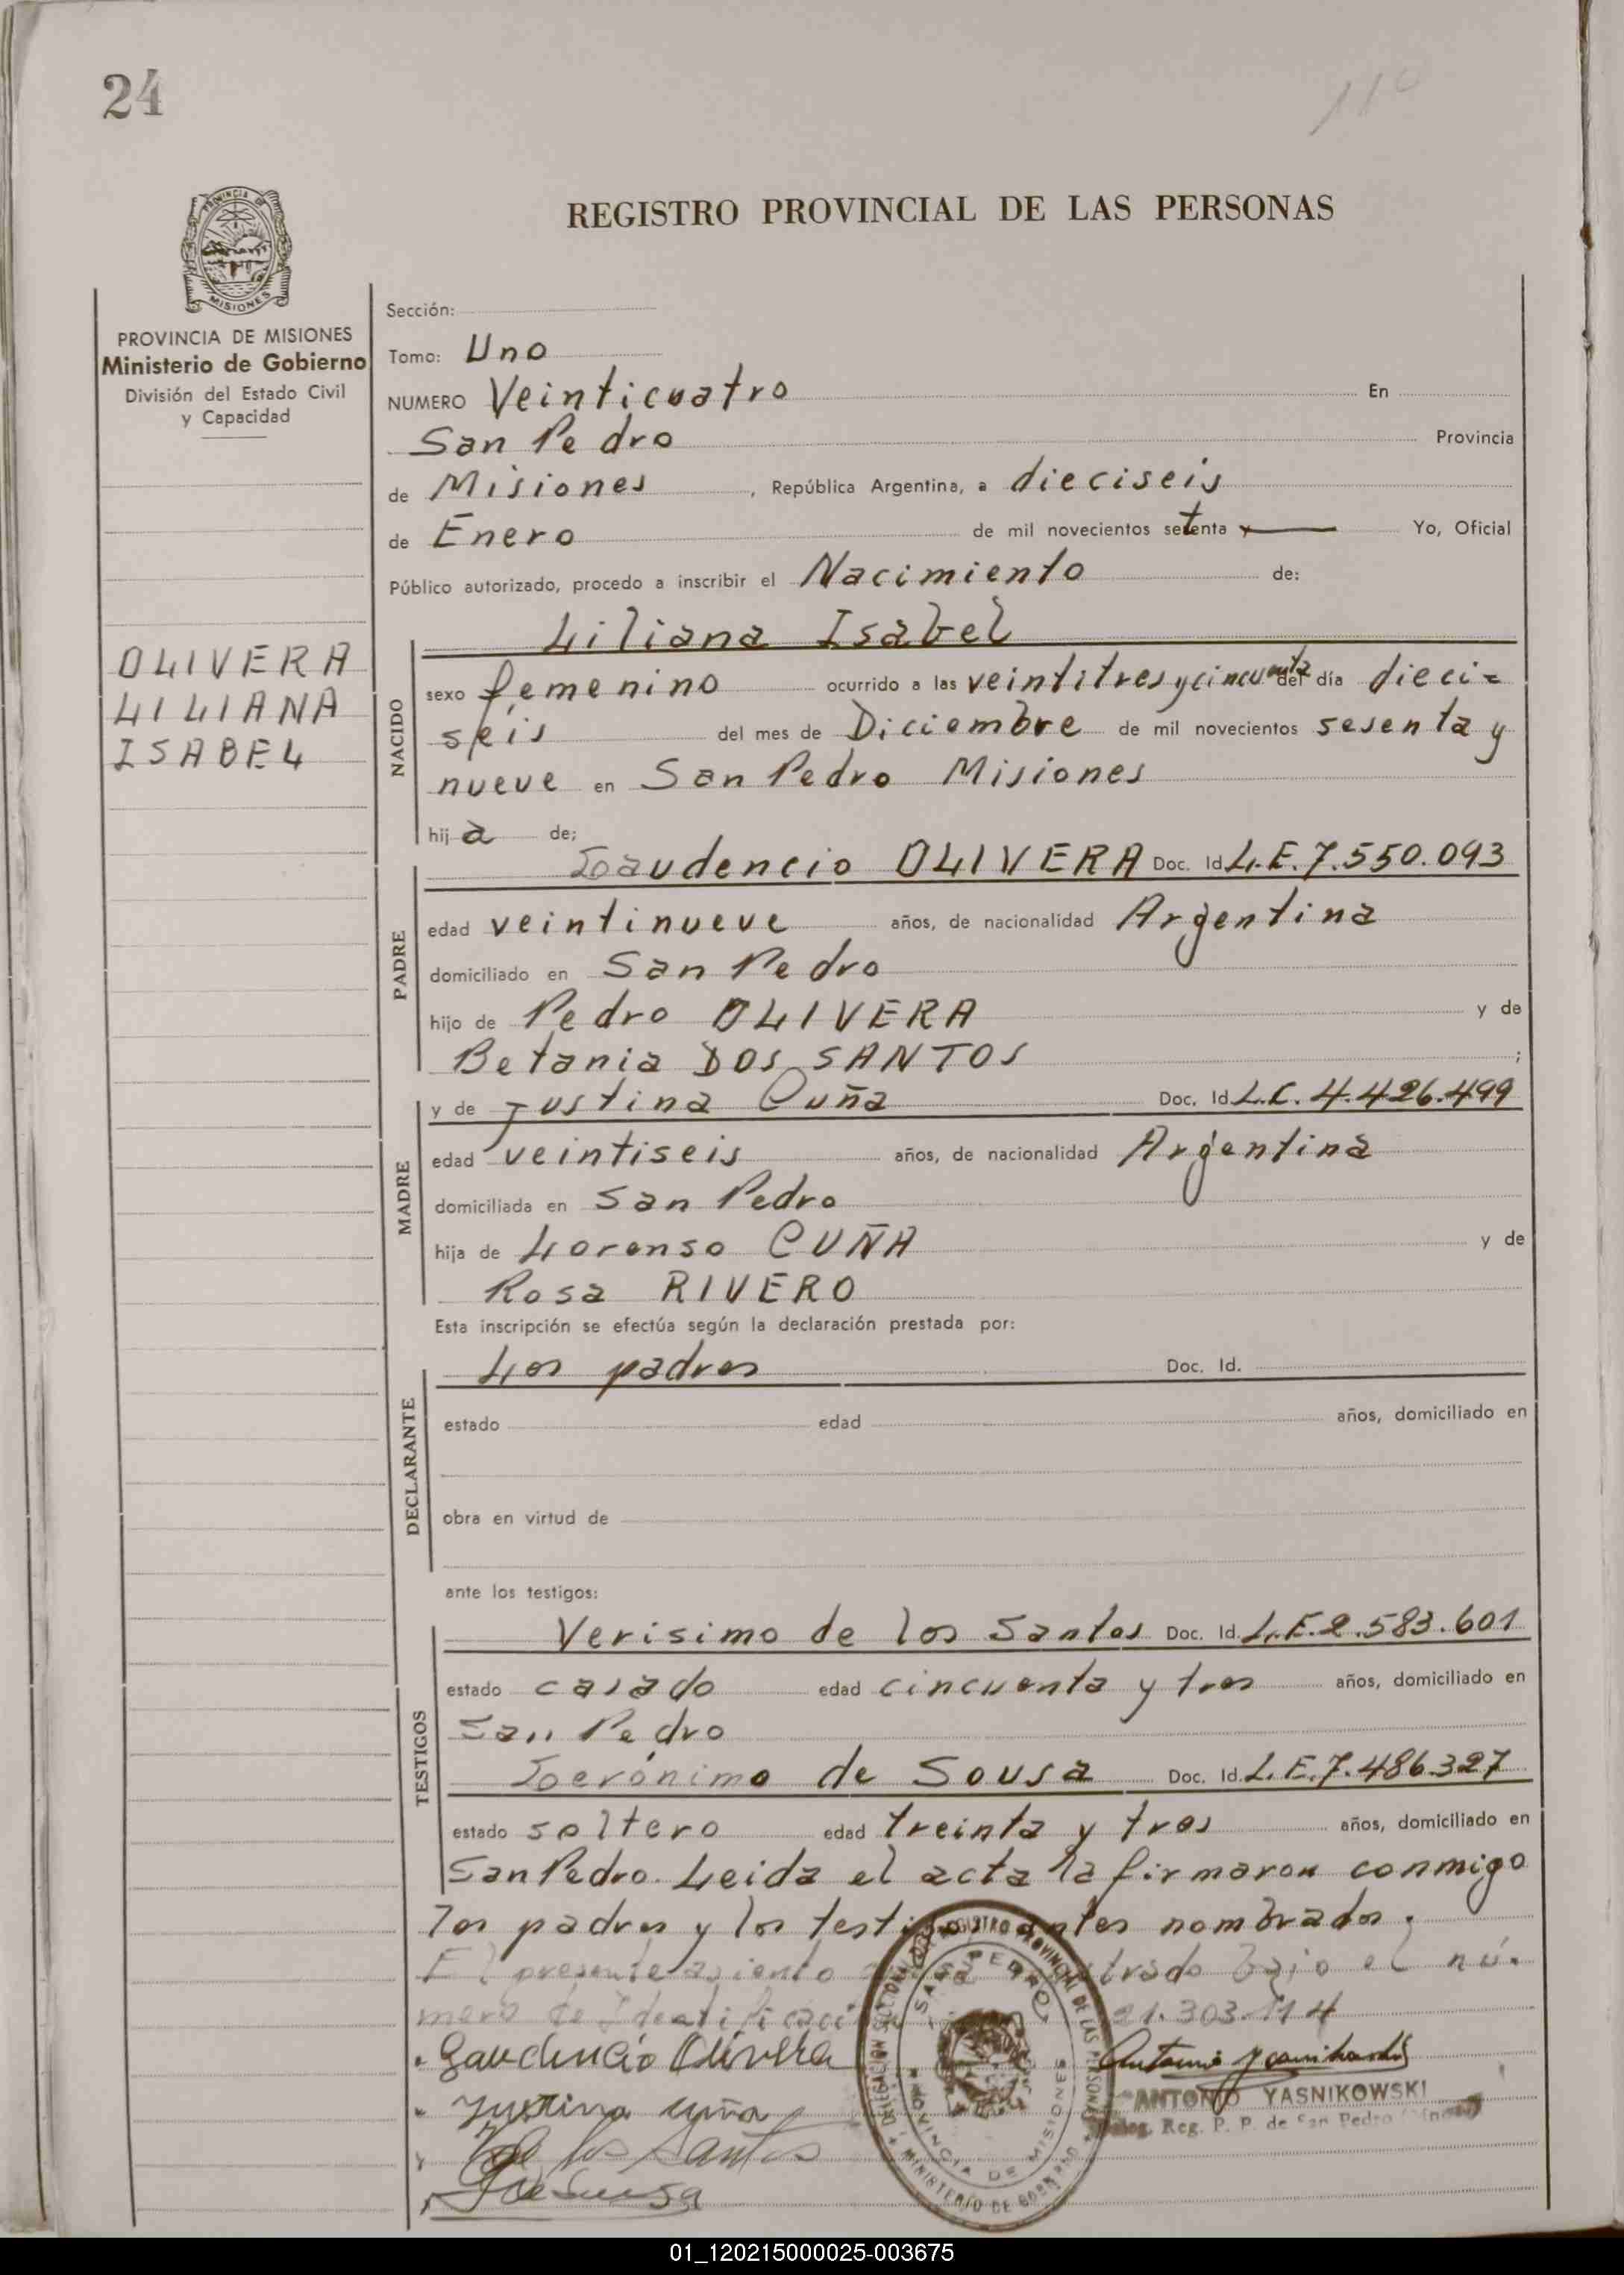 24
110
PROVINCIA DE
MISIONES
REGISTRO PROVINCIAL DE LAS PERSONAS
PROVINCIA DE MISIONES
Ministerio de Gobierno
División del Estado Civil
y Capacidad
OLIVERA
LILIANA
ISABEL
Sección:
Tomo: Uno
NUMERO Veinticuatro En
San Pedro Provincia
de Misiones, República Argentina, a dieciseis
de Enero de mil novecientos setenta y Yo, Oficial
Público autorizado, procedo a inscribir el Nacimiento de:
Liliana Isabel
NACIDO
sexo femenino ocurrido a las veintitres y cincuenta del día dieci=
seis del mes de Diciembre de mil novecientos sesenta y
nueve en San Pedro Misiones
hij a de;
PADRE
Gaudencio OLIVERA Doc. Id L.E. 7.550.093
edad veintinueve años, de nacionalidad Argentina
domiciliado en San Pedro
hijo de Pedro OLIVERA y de
Betania DOS SANTOS ;
MADRE
y de Justina Cuña Doc. Id L.C. 4.426.499
edad veintiseis años, de nacionalidad Argentina
domiciliada en San Pedro
hija de Lorenso CUÑA y de
Rosa RIVERO
Esta inscripción se efectúa según la declaración prestada por:
DECLARANTE
Los padres Doc. Id.
estado edad años, domiciliado en
obra en virtud de
ante los testigos:
TESTIGOS
Verisimo de los Santos Doc. Id. L.E. 2.583.601
estado casado edad cincuenta y tres años, domiciliado en
San Pedro
Gerónimo de Sousa Doc. Id. L.E. 7.486.327
estado soltero edad treinta y tres años, domiciliado en
San Pedro. Leida el acta la firmaron conmigo
los padres y los testigos antes nombrados.
El presente asiento bajo el nú-
mero de Identificación 21.303.114
Gaudencio Olivera
Justina Cuña
de los Santos
G de Sousa
DELEGACION SECCIONAL REGISTRO PROVINCIAL DE LAS PERSONAS
MINISTERIO DE GOBIERNO
SAN PEDRO
PROVINCIA DE MISIONES
Antonio Yasnikowski
ANTONIO YASNIKOWSKI
Deleg. Reg. P. P. de San Pedro
01_120215000025-003675